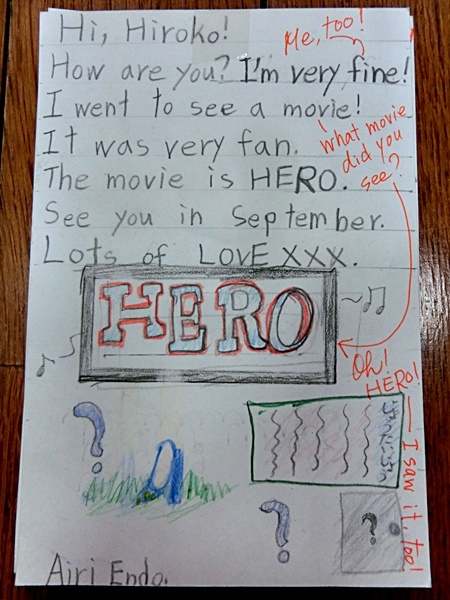 Hi, Hiroko!
Me, too!
How are you? I'm very fine!
I went to see a movie!
It was very fan.
What movie
did you
see?
The movie is HERO.
See you in September.
Lots of LOVE XXX.
HERO
Oh!
HERO!
I saw it, too!
?
?
?
Airi Endo.